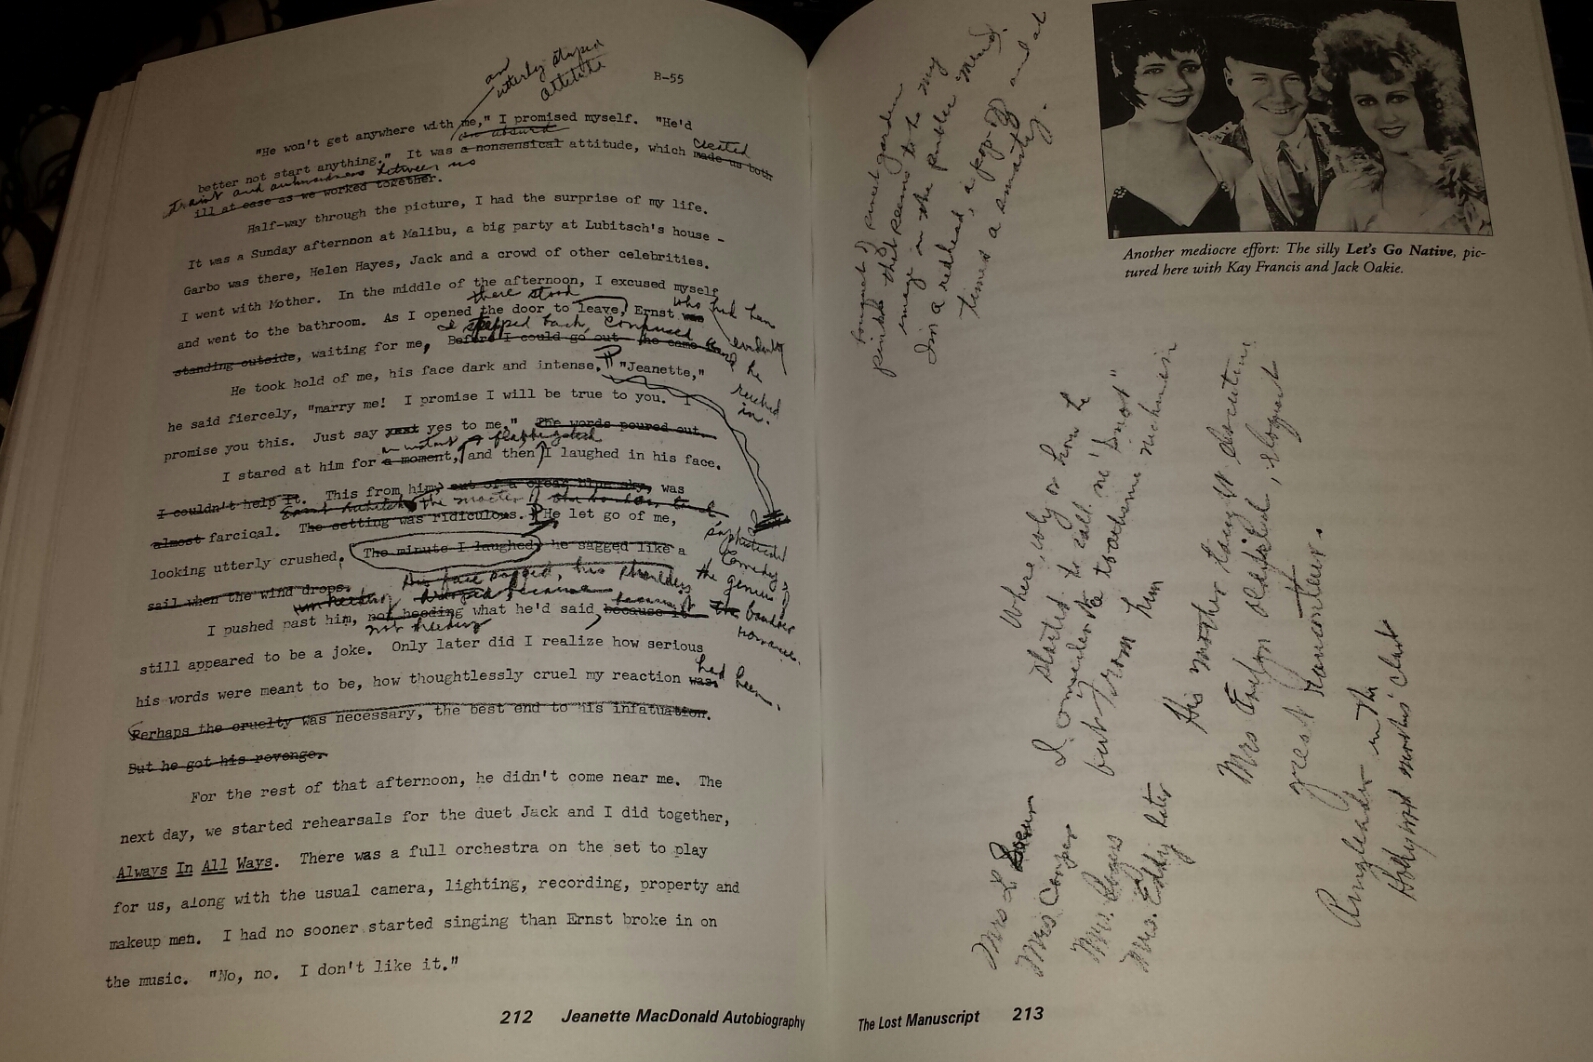 an
utterly stupid
attitude
B-55
"He won't get anywhere with me," I promised myself. "He'd
an absurd
better not start anything." It was a nonsensical attitude, which made us both
created
traint and awkwardness between us
ill at ease as we worked together.
Half-way through the picture, I had the surprise of my life.
It was a Sunday afternoon at Malibu, a big party at Lubitsch's house -
Garbo was there, Helen Hayes, Jack and a crowd of other celebrities.
I went with Mother. In the middle of the afternoon, I excused myself
there stood
and went to the bathroom. As I opened the door to leave, Ernst was
who had been
I stepped back, confused
evidently
standing outside, waiting for me, Before I could go out he came
and he
reached
in.
He took hold of me, his face dark and intense. "Jeanette,"
he said fiercely, "marry me! I promise I will be true to you. I
promise you this. Just say yes to me." The words poured out.
an instant flabbergasted
I stared at him for a moment, and then I laughed in his face.
I couldn't help it. This from him, out of a clear blue sky, was
Ernst Lubitsch, the master of
almost farcical. The setting was ridiculous. He let go of me,
sophisticated
comedy,
the genius of
boudoir
romance.
looking utterly crushed. The minute I laughed, he sagged like a
sail when the wind drops.
His face sagged, his shoulders
drooped, because
unheeding
I pushed past him, not heeding what he'd said, because it
not heeding
because
still appeared to be a joke. Only later did I realize how serious
his words were meant to be, how thoughtlessly cruel my reaction was.
had been.
Perhaps the cruelty was necessary, the best end to his infatuation.
But he got his revenge.
For the rest of that afternoon, he didn't come near me. The
next day, we started rehearsals for the duet Jack and I did together,
Always In All Ways. There was a full orchestra on the set to play
for us, along with the usual camera, lighting, recording, property and
makeup men. I had no sooner started singing than Ernst broke in on
the music. "No, no. I don't like it."
212 Jeanette MacDonald Autobiography
bouquet of sweet garden
pinks that seems to be my
image in the public mind.
I'm a redhead, and at
times a smarty.
Another mediocre effort: The silly Let's Go Native, pic-
tured here with Kay Francis and Jack Oakie.
Where, why or how he
started to call me "Snoot"
I
but from him
His mother taught
Mrs
great raconteur.
Ringleader in the
Hollywood mothers' club
Mrs
Mrs Cooper
Mrs. Rogers
Mrs. Eddy later
The Lost Manuscript 213